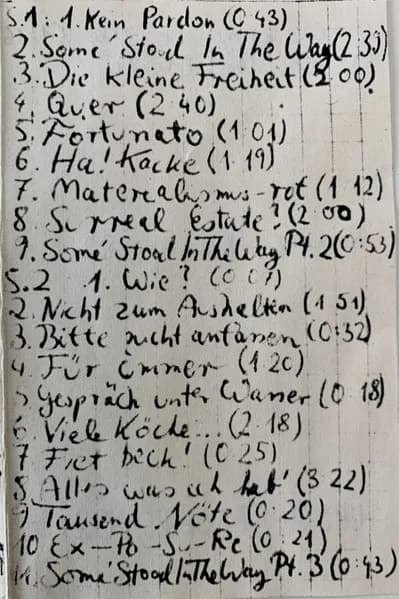 S.1: 1. Kein Pardon (0 43)
2. Somé Stood In The Way (2 33)
3. Die kleine Freiheit (2 00)
4. Quer (2 40)
5. Fortunato (1 01)
6. Ha! Kacke (1 19)
7. Materealismus-rot (1 12)
8. Surreal Estate? (2 00)
9. Somé Stood In The Way Pt. 2 (0:53)
S.2 1. Wie? (0 07)
2. Nicht zum Aushalten (1 51)
3. Bitte nicht anfassen (0:32)
4. Für immer (1 20)
5 Gespräch unter Wasser (0 18)
6. Viele Köche... (2 18)
7 Fiet bech! (0 25)
8. Alles was ich hab' (3 22)
9 Tausend Nöte (0 20)
10 Ex-Po-Su-Re (0 21)
11. Somé Stood In The Way Pt. 3 (0:43)